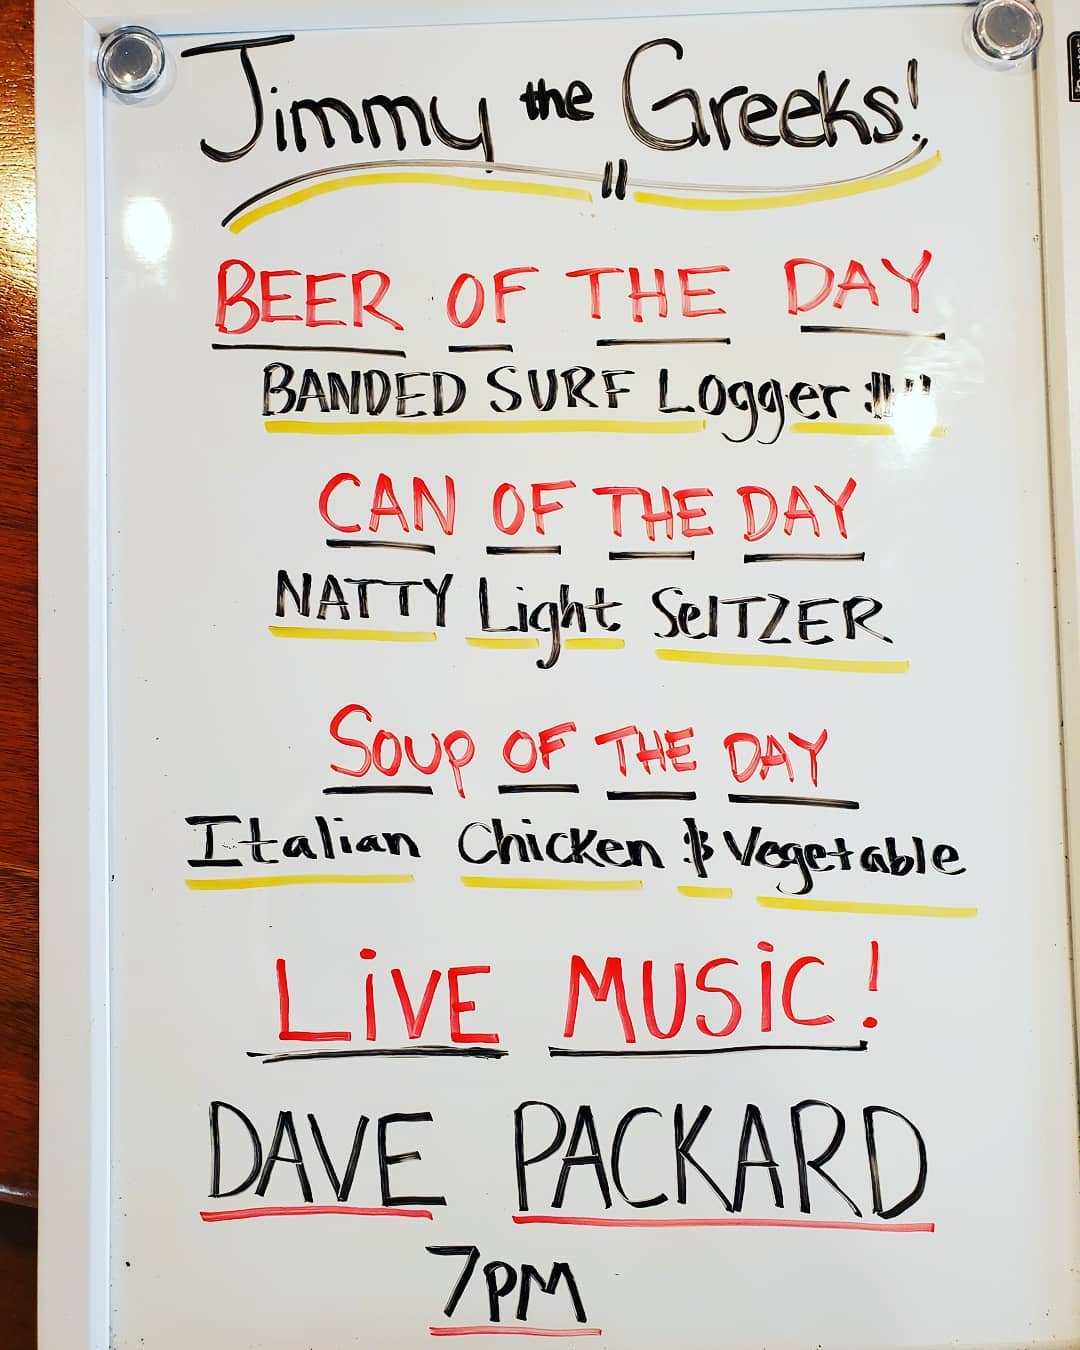 Jimmy the Greeks!
BEER OF THE DAY
BANDED SURF Logger
CAN OF THE DAY
NATTY Light SElTZER
Soup OF THE DAY
Italian Chicken & Vegetable
LiVE MUSiC!
DAVE PACKARD
7PM